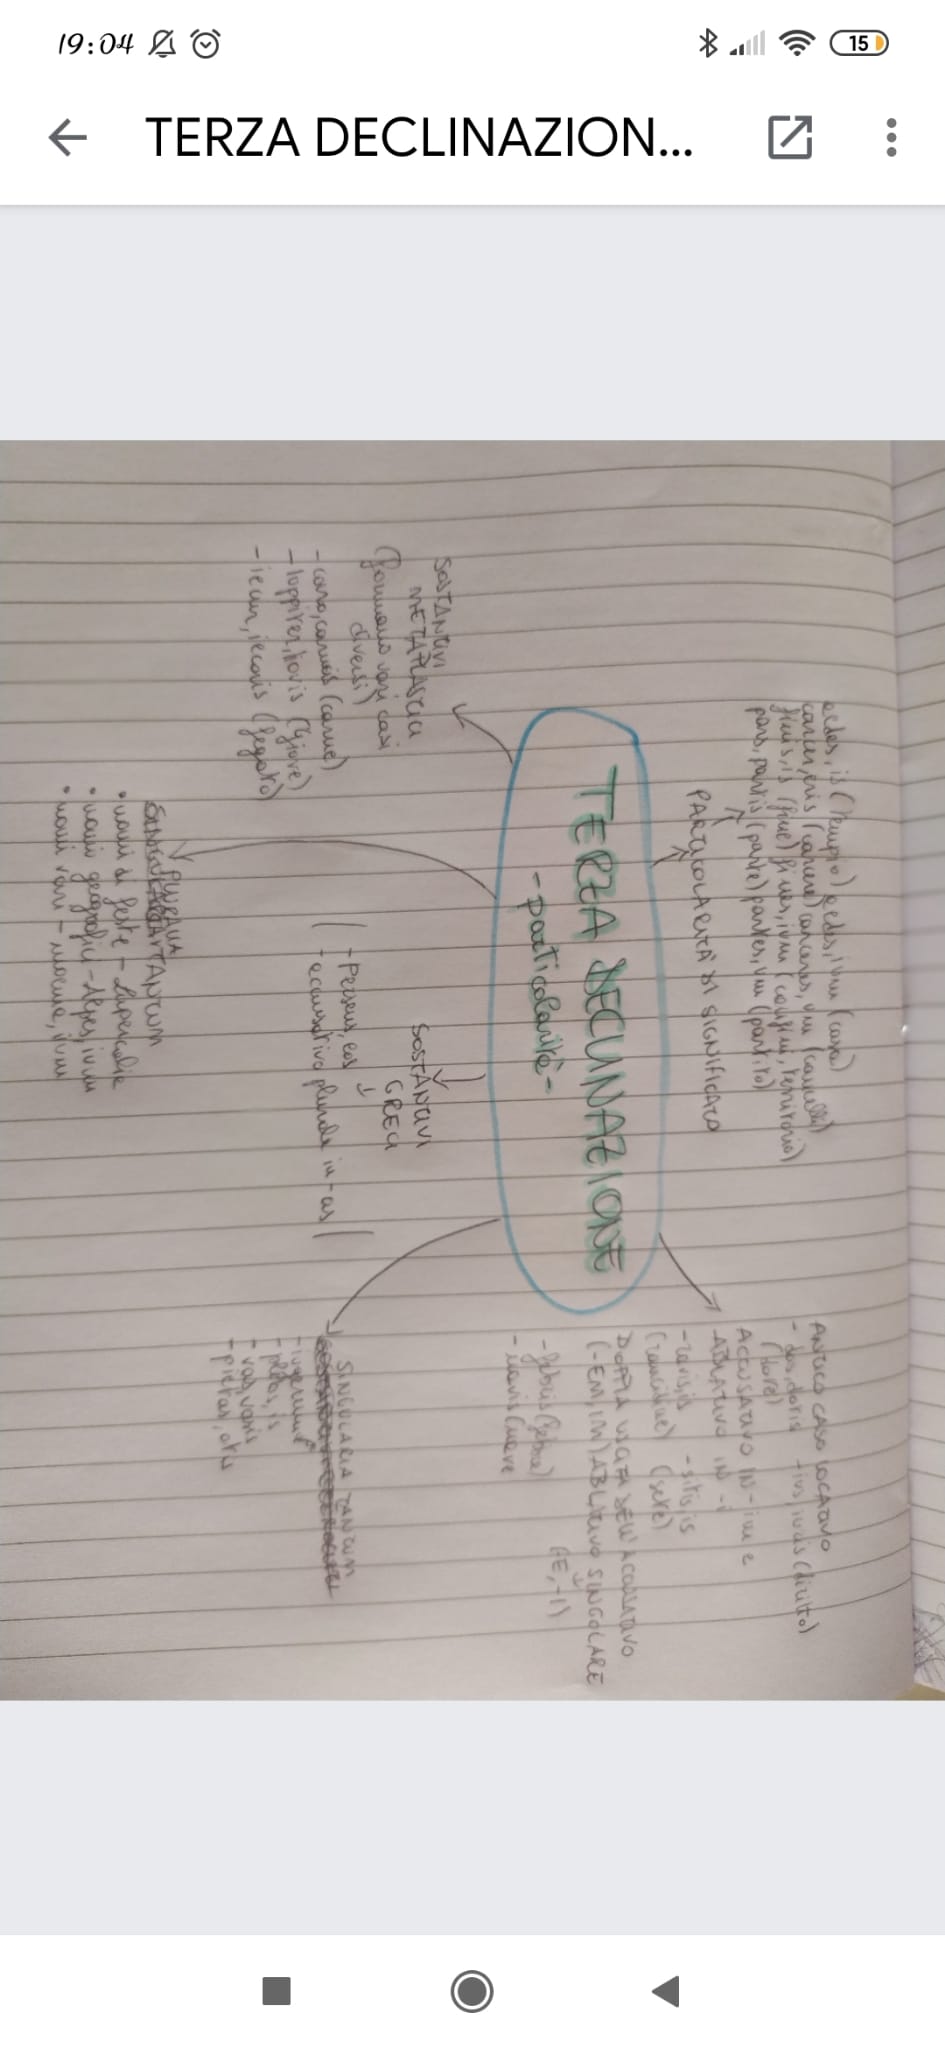 19:04
15
TERZA DECLINAZION...
aedes, is (tempio) aedes, ium (casa)
carcer, eris (carcere) carceres, um (cancelli)
finis, is (fine) fines, ium (confini, territorio)
pars, partis (parte) partes, um (partito)
PARTICOLARITÀ DI SIGNIFICATO
TERZA DECLINAZIONE
- particolarità -
ANTICO CASO LOCATIVO
- ius, iuris (diritto)
ACCUSATIVO IN -im e
ABLATIVO IN -i
- sitis, is
(sete)
DOPPIA USCITA DELL'ACCUSATIVO
(-EM, IM) ABLATIVO SINGOLARE
(E, -I)
- febris (febbre)
- navis (nave
SOSTANTIVI
METAPLASTICI
(formano vari casi
diversi)
- caro, carnis (carne)
- Iuppiter, Iovis (Giove)
- iecur, iecoris (fegato)
SOSTANTIVI
GRECI
- Perseus, eos
- accusativo plurale in -as
SINGULARIA TANTUM
- plebs, is
- pietas, atis
PLURALIA
TANTUM
• nomi di feste -
• nomi geografici - Alpes, ium
• nomi vari - moenia, ium